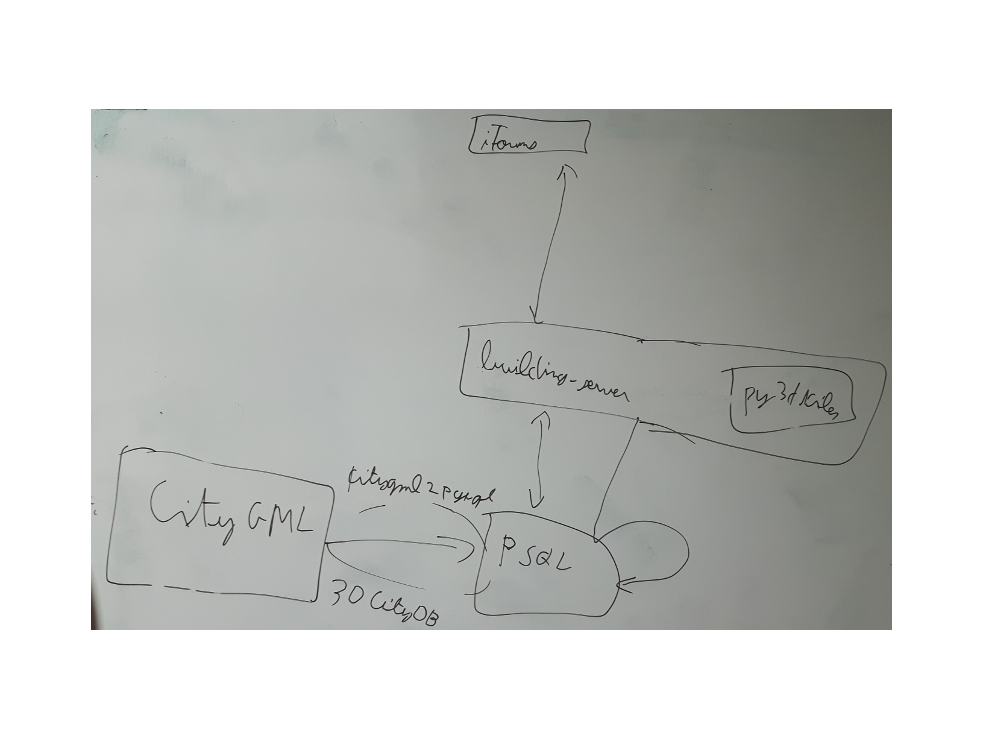 iTowns
building-server
py3dtiles
citygml2pgsql
CityGML
PSQL
3DCityDB